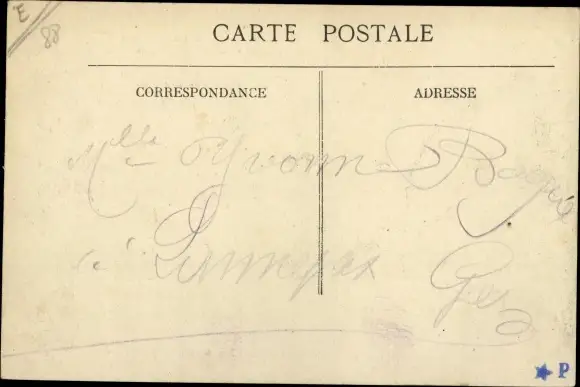 E
88
CARTE POSTALE
CORRESPONDANCE
ADRESSE
Mlle Yvonne
à Lannepax Gers
P